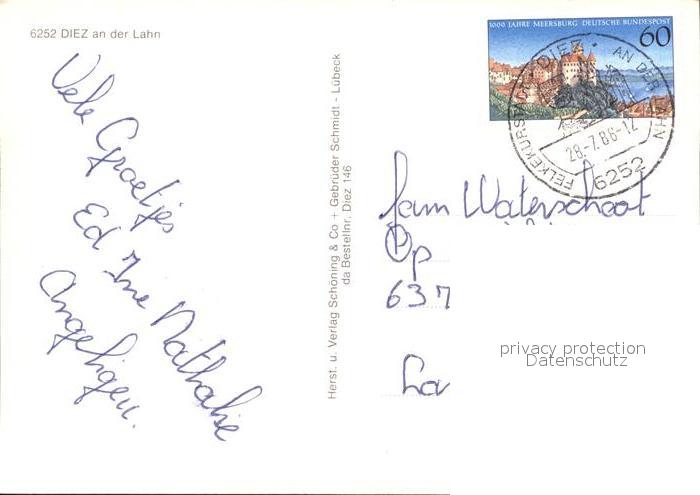 6252 DIEZ an der Lahn
Vele Groetjes
Ed Ine Nathalie
Angeligen.
Herst. u. Verlag Schöning & Co + Gebrüder Schmidt - Lübeck
da Bestellnr. Diez 146
1000 JAHRE MEERSBURG DEUTSCHE BUNDESPOST
60
DIEZ · AN DER LAHN
28.-7.86-12
6252
fam Waterschoot
Op
637
La
privacy protection
Datenschutz